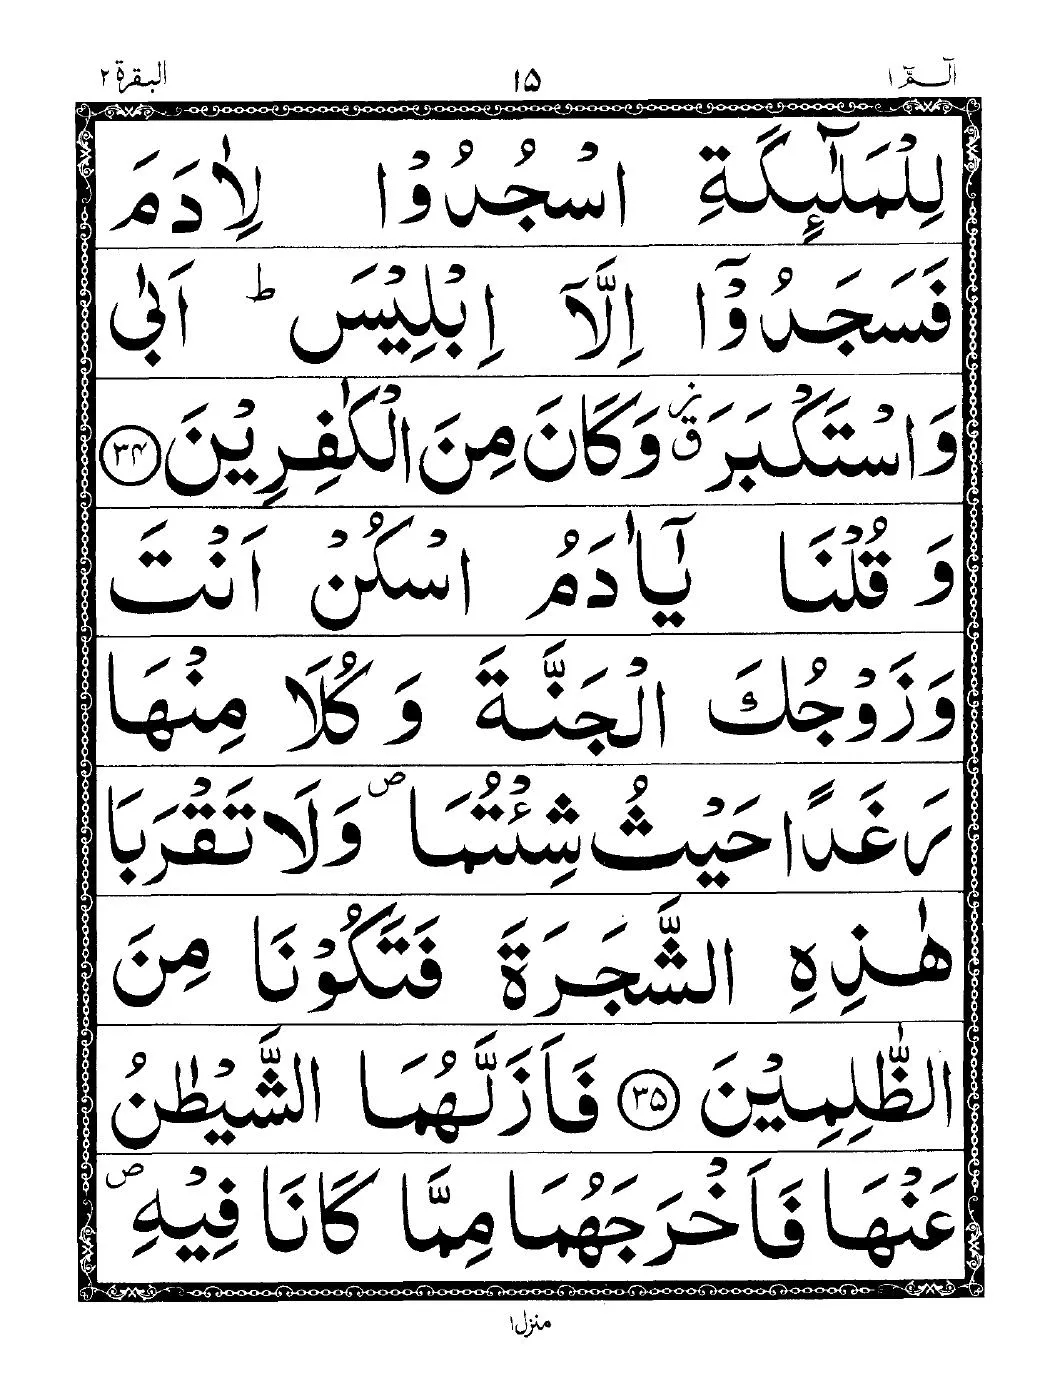 الٓـمّٓ ۱ ۱۵ البقرة ۲
لِلْمَلٰٓئِكَةِ اسْجُدُوْا لِاٰدَمَ
فَسَجَدُوْۤا اِلَّاۤ اِبْلِيْسَ ؕ اَبٰى
وَاسْتَكْبَرَ ۗ٘ وَكَانَ مِنَ الْكٰفِرِيْنَ ﴿۳۴﴾
وَ قُلْنَا يٰۤاٰدَمُ اسْكُنْ اَنْتَ
وَزَوْجُكَ الْجَنَّةَ وَ كُلَا مِنْهَا
رَغَدًا حَيْثُ شِئْتُمَا ۪ وَلَا تَقْرَبَا
هٰذِهِ الشَّجَرَةَ فَتَكُوْنَا مِنَ
الظّٰلِمِيْنَ ﴿۳۵﴾ فَاَزَلَّهُمَا الشَّيْطٰنُ
عَنْهَا فَاَخْرَجَهُمَا مِمَّا كَانَا فِيْهِ ۪
منزل ۱